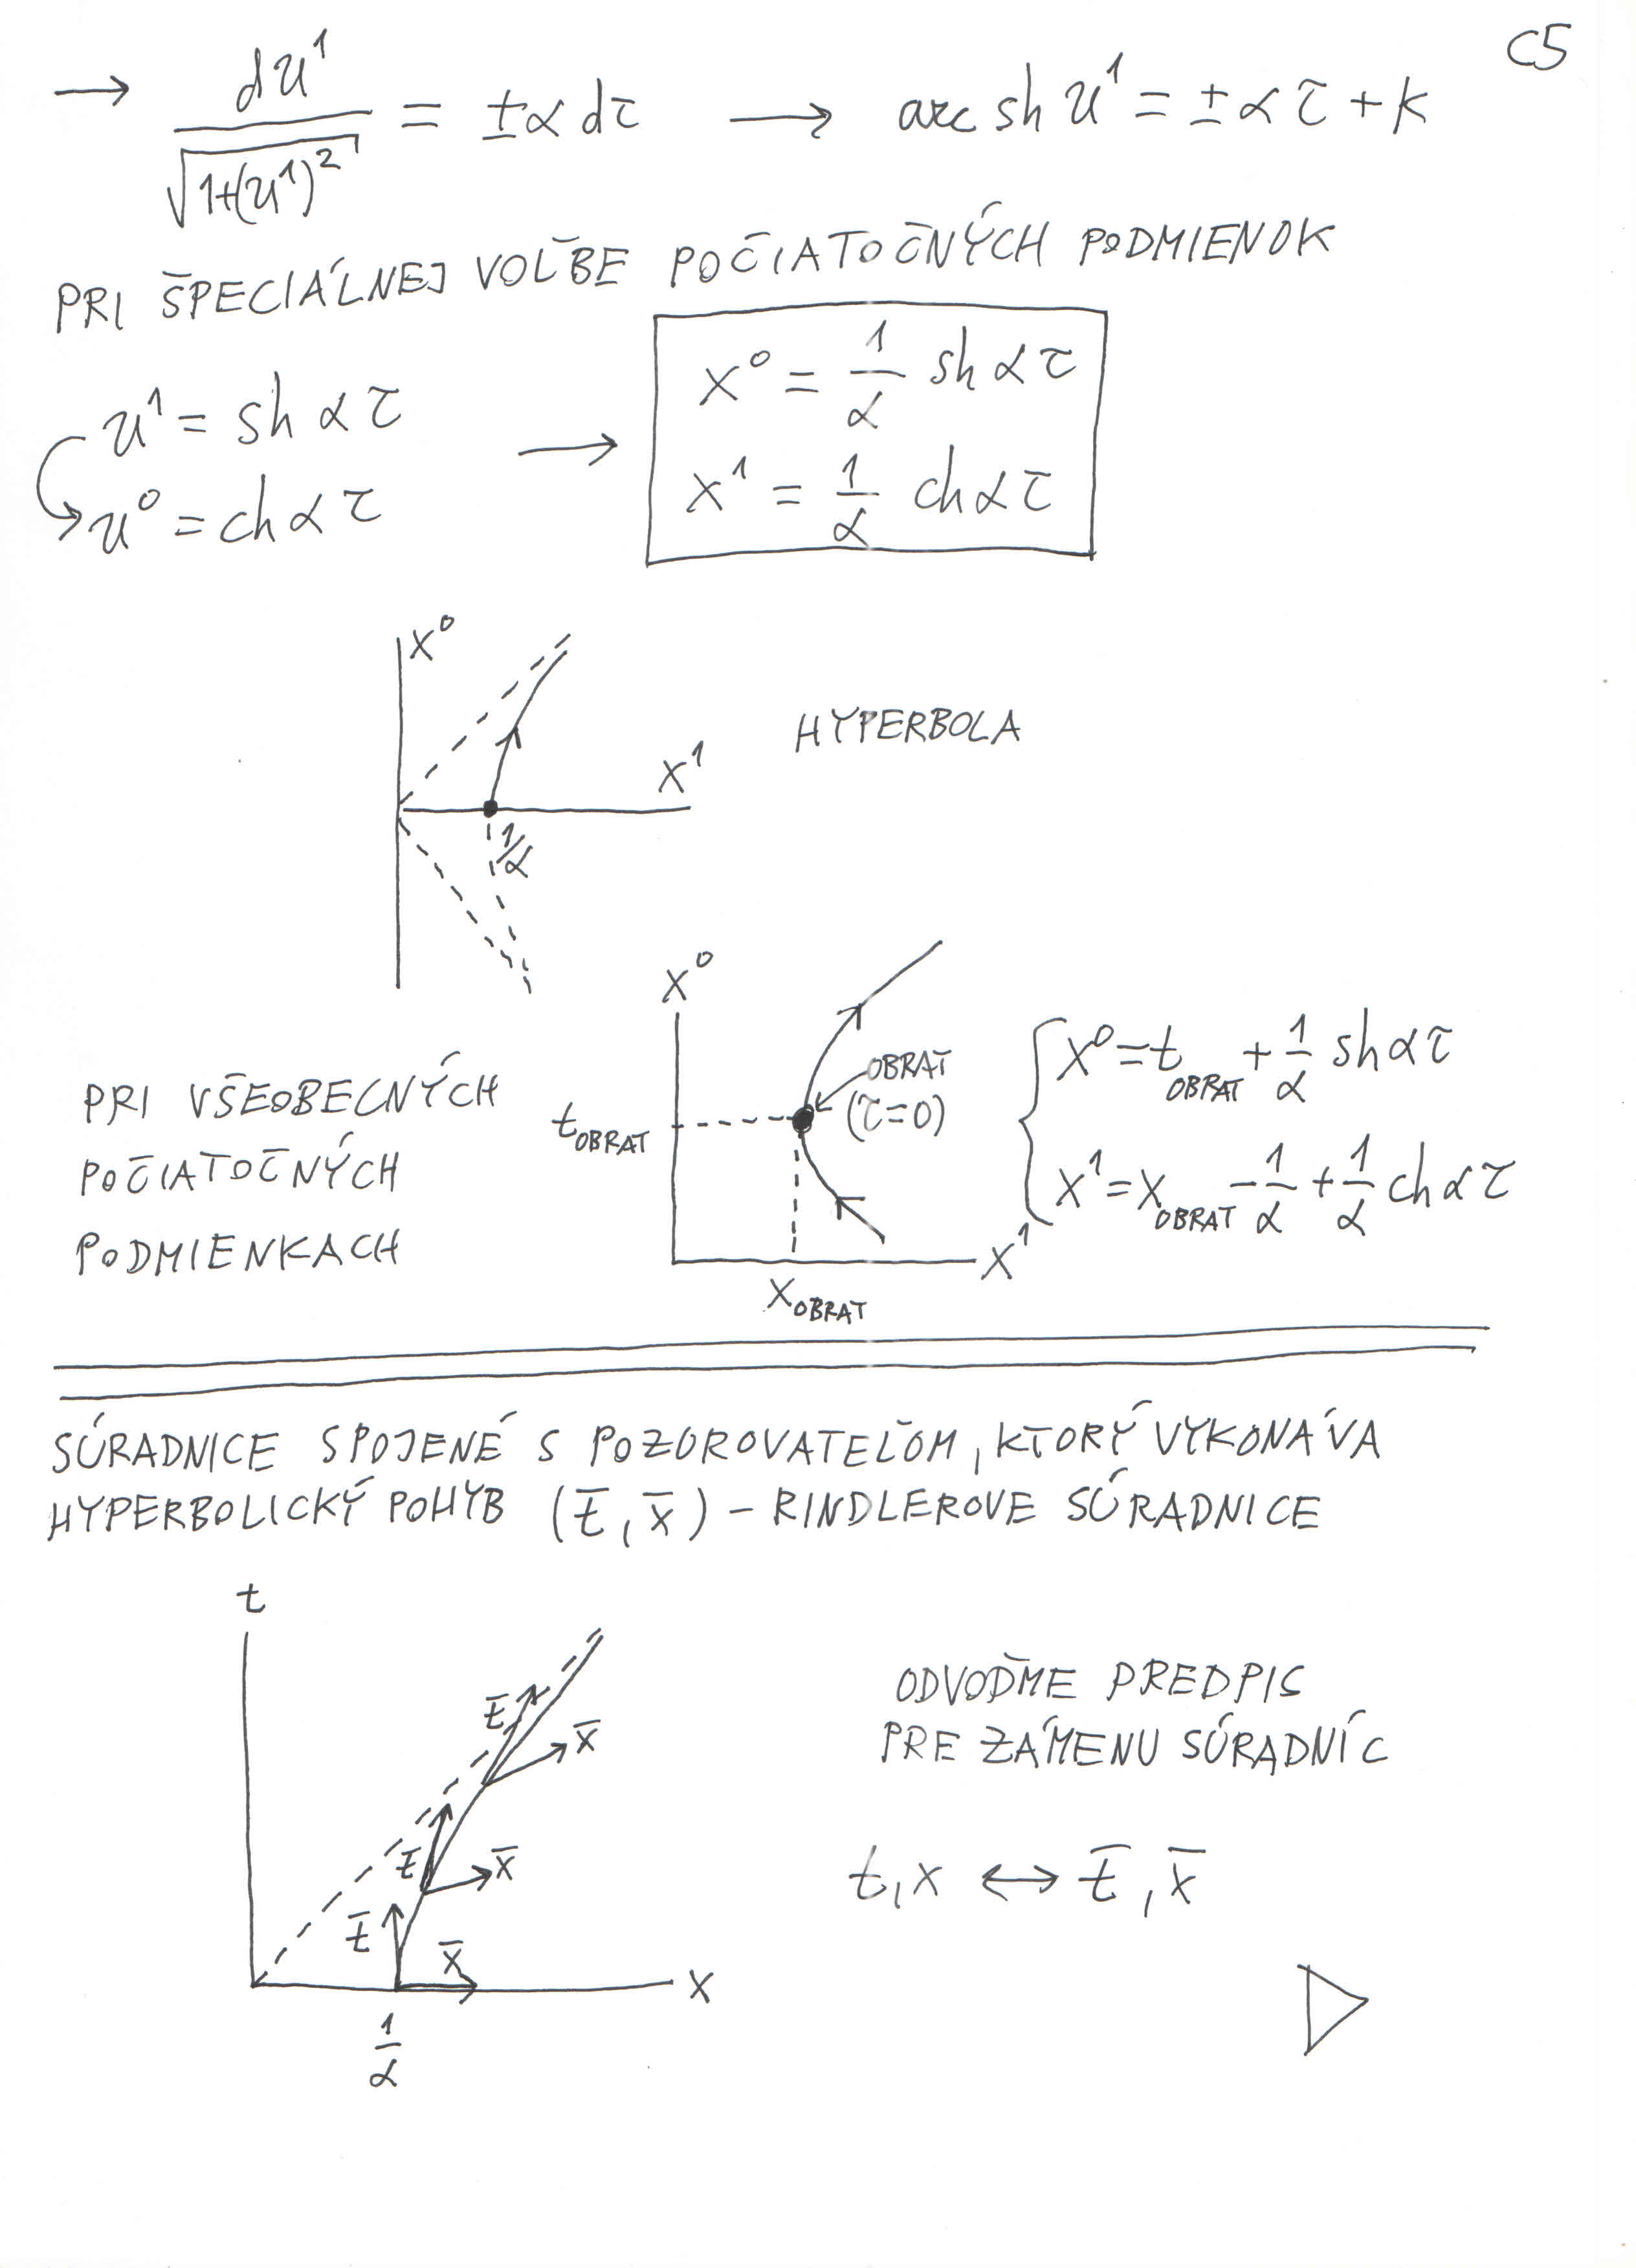 C5
→ du¹/√(1+(u¹)²) = ±α dτ → arc sh u¹ = ±α τ + k
PRI ŠPECIÁLNEJ VOĽBE POČIATOČNÝCH PODMIENOK
u¹ = sh α τ
u⁰ = ch α τ
→
x⁰ = 1/α sh α τ
x¹ = 1/α ch α τ
x⁰
HYPERBOLA
x¹
1/α
x⁰
PRI VŠEOBECNÝCH
POČIATOČNÝCH
PODMIENKACH
t_OBRAT
OBRAT
(τ=0)
x¹
x_OBRAT
{ x⁰ = t_OBRAT + 1/α sh α τ
x¹ = x_OBRAT - 1/α + 1/α ch α τ
SÚRADNICE SPOJENÉ S POZOROVATEĽOM, KTORÝ VYKONÁVA
HYPERBOLICKÝ POHYB (t̄, x̄) – RINDLEROVE SÚRADNICE
t
t̄
x̄
t̄
x̄
t̄
x̄
x
1/α
ODVOĎME PREDPIS
PRE ZÁMENU SÚRADNÍC
t, x ↔ t̄, x̄